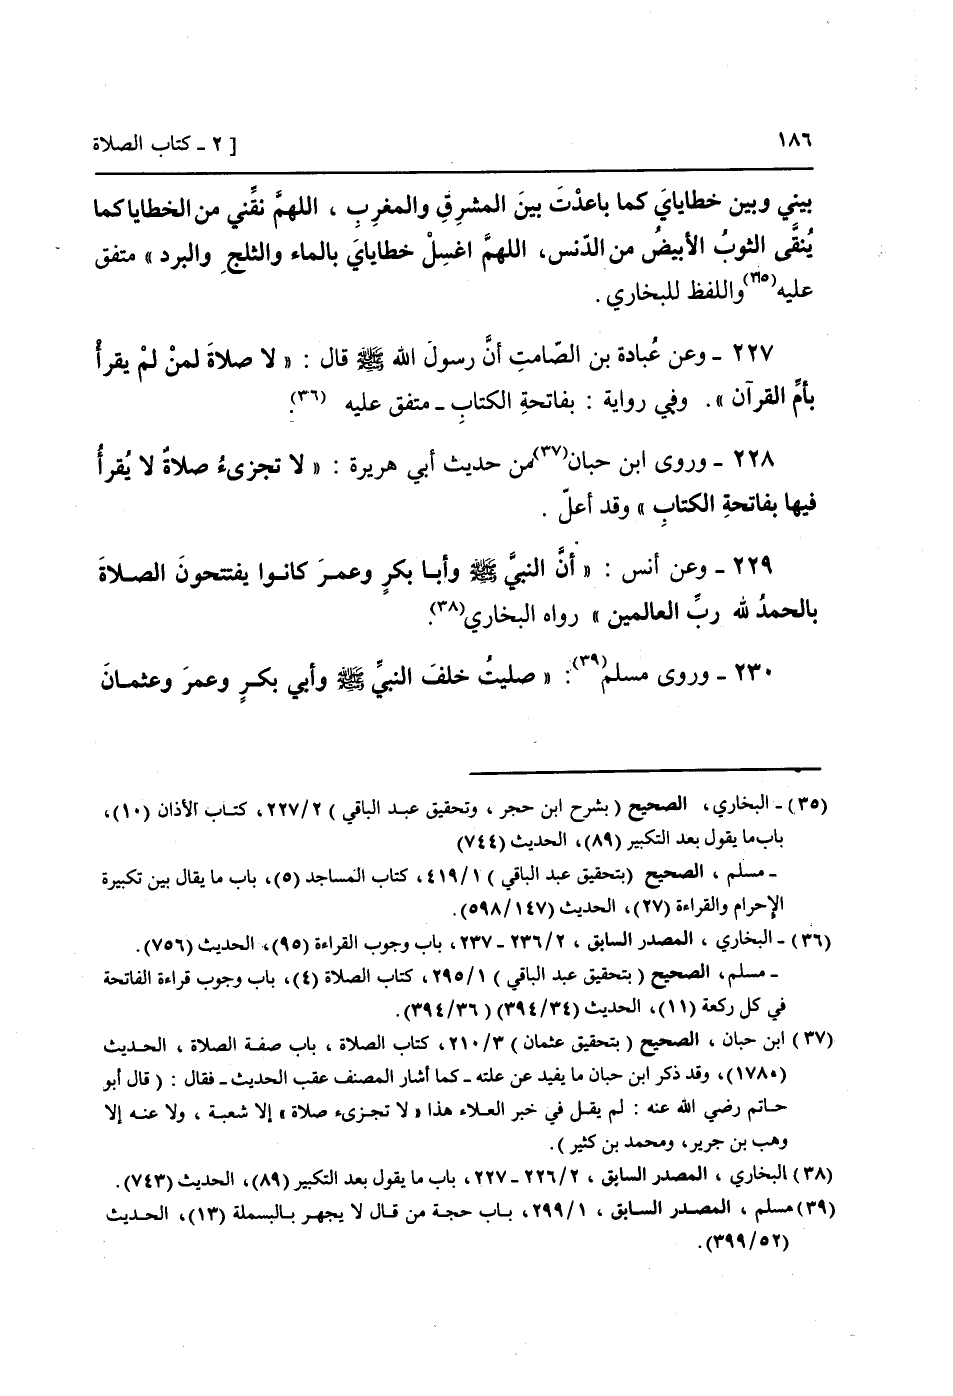 ١٨٦
[ ٢ ـ كتاب الصلاة
بيني وبين خطايايَ كما باعدْتَ بينَ المشرِقِ والمغرِبِ ، اللهمَّ نقِّني من الخطايا كما
يُنقَّى الثوبُ الأبيضُ من الدّنس، اللهمَّ اغسِلْ خطايايَ بالماء والثلجِ والبرد » متفق
عليه(٣٥) واللفظ للبخاري .
٢٢٧ ـ وعن عُبادة بن الصّامتِ أنَّ رسولَ الله ﷺ قال : « لا صلاةَ لمنْ لمْ يقرأْ
بأمِّ القرآن ». وفي رواية : بفاتحةِ الكتابِ ـ متفق عليه (٣٦).
٢٢٨ ـ وروى ابن حبان(٣٧) من حديث أبي هريرة : « لا تجزىءُ صلاةٌ لا يُقرأُ
فيها بفاتحةِ الكتابِ » وقد أعلّ .
٢٢٩ ـ وعن أنس : « أنَّ النبيَّ ﷺ وأبا بكرٍ وعمرَ كانوا يفتتحونَ الصلاةَ
بالحمدُ لله ربِّ العالمين » رواه البخاري(٣٨).
٢٣٠ ـ وروى مسلم(٣٩): « صليتُ خلفَ النبيِّ ﷺ وأبي بكرٍ وعمرَ وعثمانَ
(٣٥) ـ البخاري، الصحيح ( بشرح ابن حجر ، وتحقيق عبد الباقي ) ٢٢٧/٢، كتاب الأذان (١٠)،
باب ما يقول بعد التكبير (٨٩)، الحديث (٧٤٤)
ـ مسلم ، الصحيح (بتحقيق عبد الباقي ) ٤١٩/١، كتاب المساجد (٥)، باب ما يقال بين تكبيرة
الإحرام والقراءة (٢٧)، الحديث (٥٩٨/١٤٧).
(٣٦) ـ البخاري ، المصدر السابق ، ٢٣٦/٢ ـ ٢٣٧، باب وجوب القراءة (٩٥)، الحديث (٧٥٦).
ـ مسلم، الصحيح ( بتحقيق عبد الباقي ) ٢٩٥/١، كتاب الصلاة (٤)، باب وجوب قراءة الفاتحة
في كل ركعة (١١)، الحديث (٣٩٤/٣٤) ( ٣٩٤/٣٦).
(٣٧) ابن حبان ، الصحيح ( بتحقيق عثمان ) ٢١٠/٣، كتاب الصلاة ، باب صفة الصلاة ، الحديث
(١٧٨٠)، وقد ذكر ابن حبان ما يفيد عن علته ـ كما أشار المصنف عقب الحديث ـ فقال : ( قال أبو
حاتم رضي الله عنه : لم يقل في خبر العلاء هذا « لا تجزىء صلاة » إلا شعبة ، ولا عنه إلا
وهب بن جرير، ومحمد بن كثير ).
(٣٨) البخاري ، المصدر السابق ، ٢٢٦/٢ ـ ٢٢٧، باب ما يقول بعد التكبير (٨٩)، الحديث (٧٤٣).
(٣٩) مسلم ، المصدر السابق ، ٢٩٩/١، باب حجة من قال لا يجهر بالبسملة (١٣)، الحديث
(٣٩٩/٥٢).